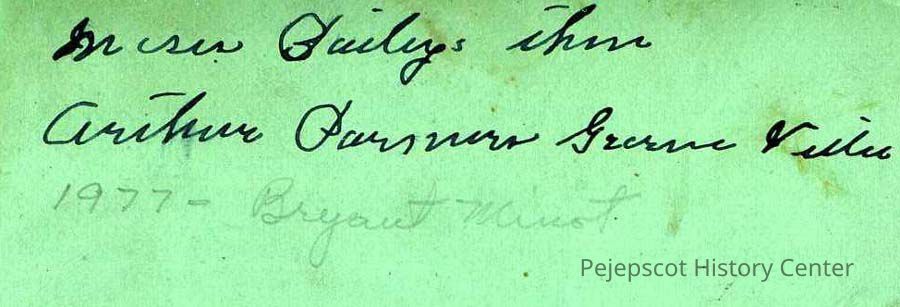 Moses Bailys then
Arthur Parsners Greene Ville
1977 - Bryant Minot
Pejepscot History Center